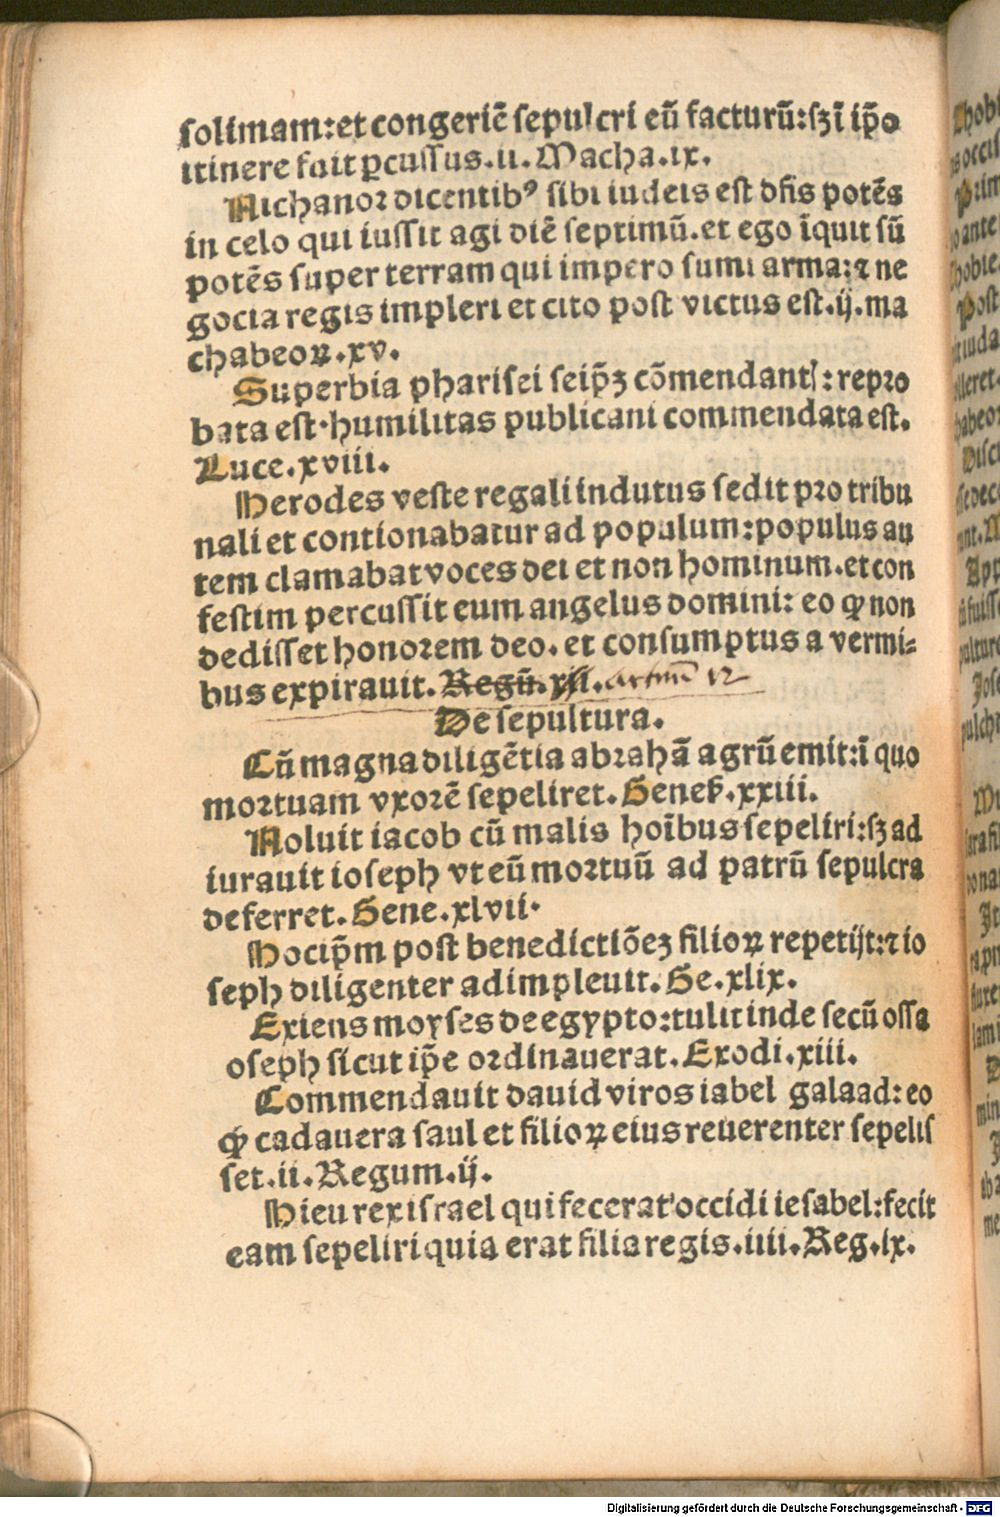 solimam:et congeriē sepulcri eū facturū:sꝫ ī ip̄o
itinere fuit ꝑcussus.ii. Macha.ix.
Nichanor dicentibꝰ sibi iudeis est dn̄s potēs
in celo qui iussit agi diē septimū.et ego īquit sū
potēs super terram qui impero sumi arma:⁊ ne
gocia regis impleri et cito post victus est.ij.ma
chabeoꝝ.xv.
Superbia pharisei seip̄ꝫ cōmendantꝭ:repro
bata est.humilitas publicani commendata est.
Luce.xviii.
Herodes veste regali indutus sedit pro tribu
nali et contionabatur ad populum:populus au
tem clamabat voces dei et non hominum.et con
festim percussit eum angelus domini: eo ꝙ non
dedisset honorem deo. et consumptus a vermi⸗
bus expirauit. Regū.xii. actuum 12
De sepultura.
Cū magna diligētia abrahā agrū emit:ī quo
mortuam vxorē sepeliret. Genes.xxiii.
Noluit iacob cū malis hoībus sepeliri:sꝫ ad
iurauit ioseph vt eū mortuū ad patrū sepulcra
deferret. Gene.xlvii.
Hocip̄m post benedictiōeꝫ filioꝝ repetijt:⁊ io
seph diligenter adimpleuit. Ge.xlix.
Exiens moyses de egypto:tulit inde secū ossa
oseph sicut ip̄e ordinauerat. Exodi.xiii.
Commendauit dauid viros iabel galaad: eo
ꝙ cadauera saul et filioꝝ eius reuerenter sepelis
set.ii. Regum.ij.
Hieu rex israel qui fecerat occidi iesabel:fecit
eam sepeliri quia erat filia regis.iiii. Reg.ix.
Digitalisierung gefördert durch die Deutsche Forschungsgemeinschaft - DFG